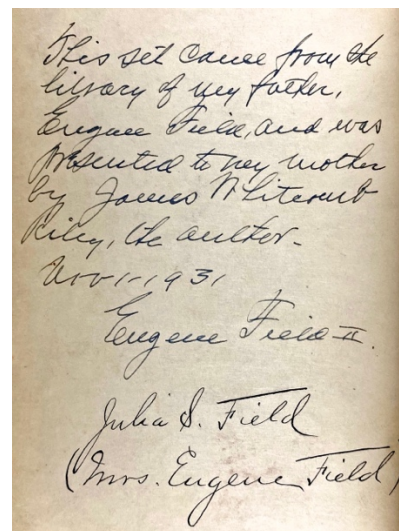 This set came from the
library of my father,
Eugene Field, and was
presented to my mother
by James Whitcomb
Riley, the author.
Nov-1-1931
Eugene Field II.
Julia S. Field
(Mrs. Eugene Field)